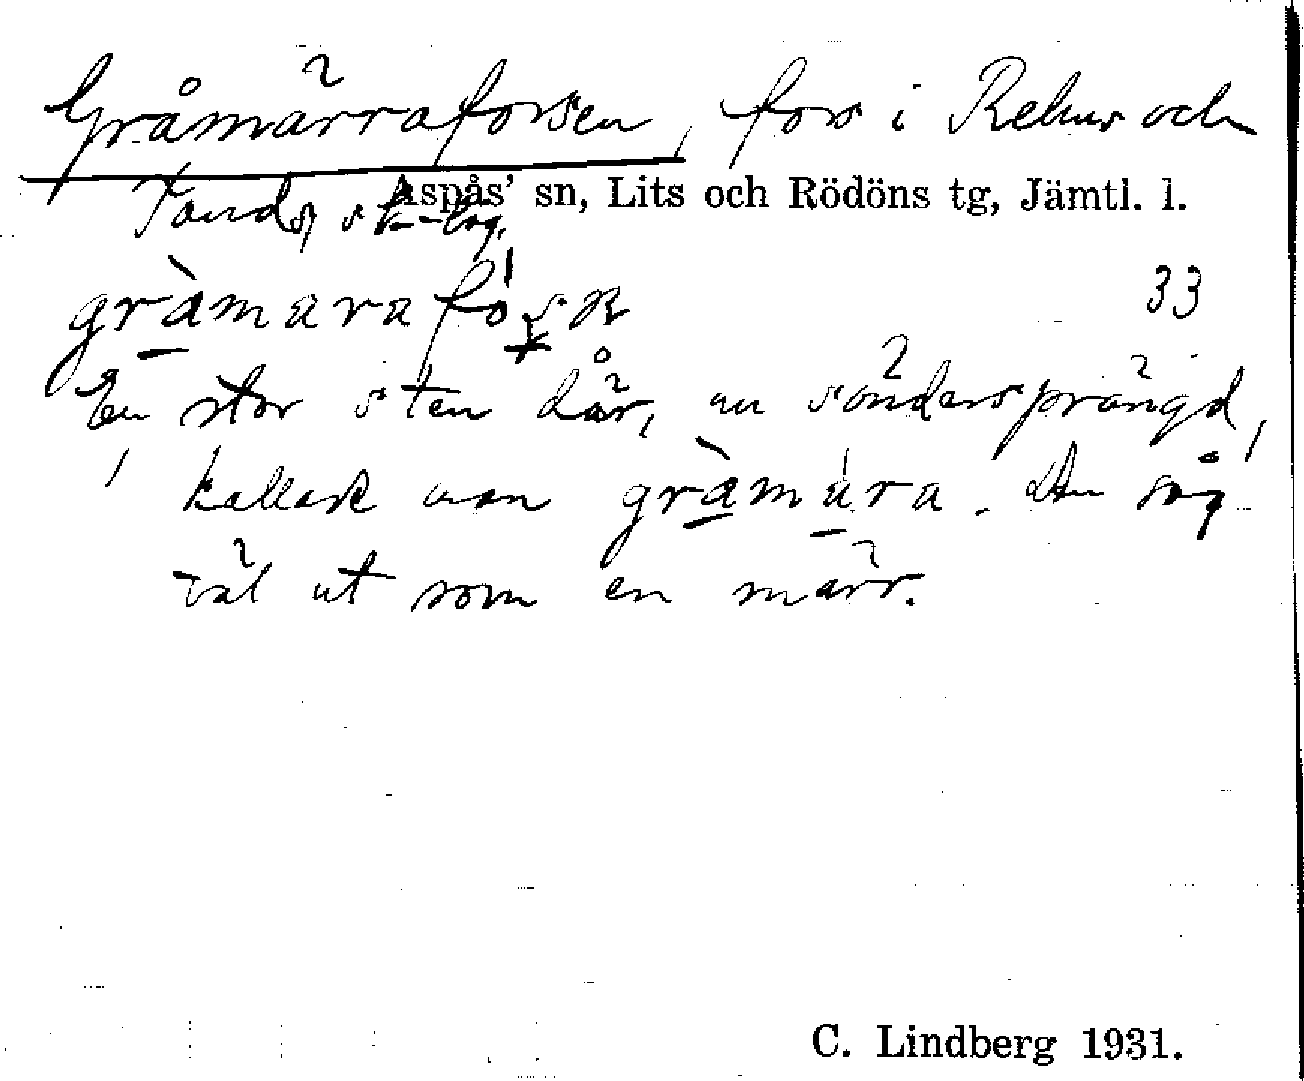 Gråmärraforsen, fors i Rekur och
Aspås' sn, Lits och Rödöns tg, Jämtl. l.
Tands sk-lag.
gràmarafó
33
En stor sten där, nu söndersprängd,
kallade man gràmára. Den såg
väl ut som en märr.
C. Lindberg 1931.